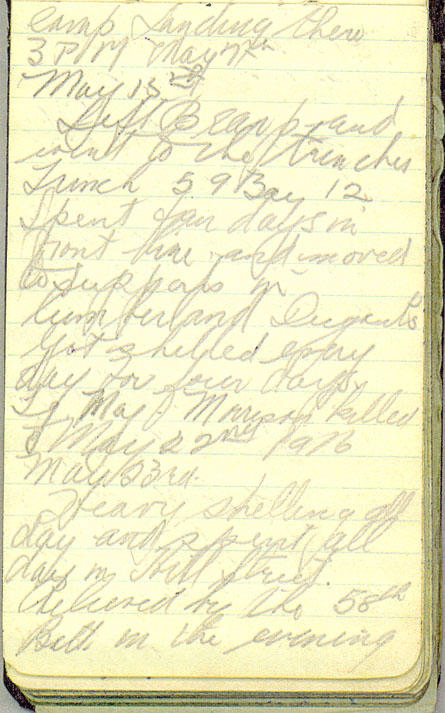 camp landing there
3 PM May 7th
May 13th
Left B Camp and
went to the trenches
Trench 59 Bay 12
Spent four days in
front line and moved
to supports in
Cumberland Dugouts
Got shelled every
day for four days.
May Morrison killed
May 22nd 1916
May 23rd.
Heavy shelling all
day and spent all
day in Street.
Relieved by the 58th
Batt in the evening